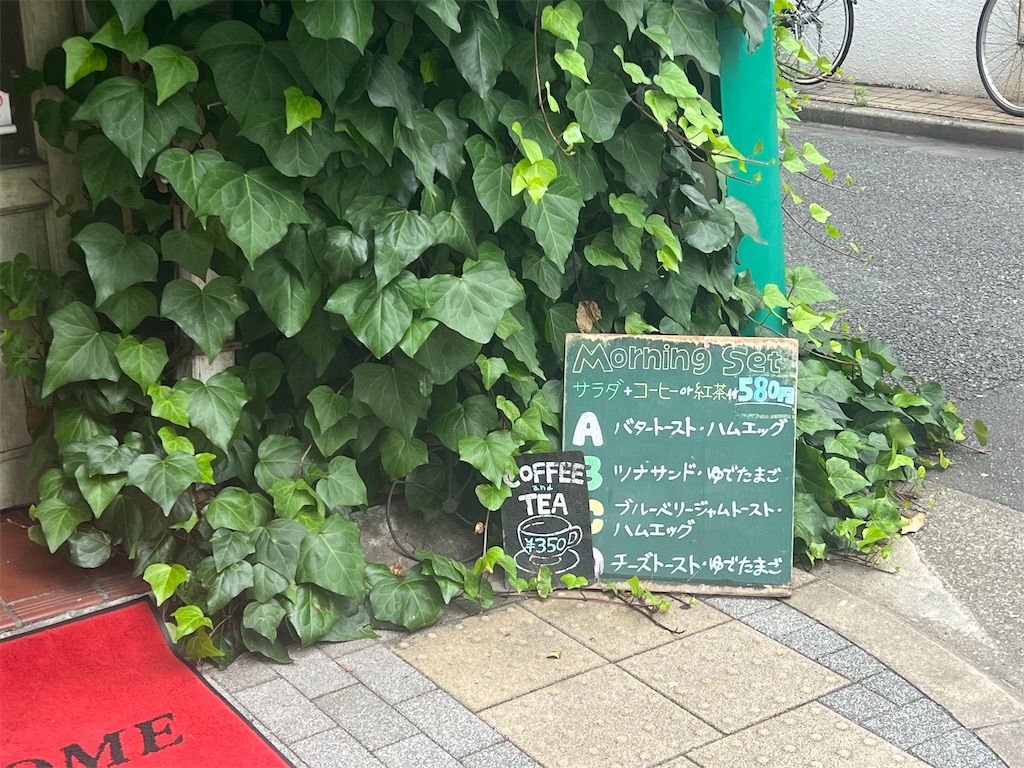 Morning Set
サラダ+コーヒーor紅茶付580円
A バタートースト・ハムエッグ
B ツナサンド・ゆでたまご
C ブルーベリージャムトースト・
ハムエッグ
チーズトースト・ゆでたまご
COFFEE
and
TEA
¥350
OME